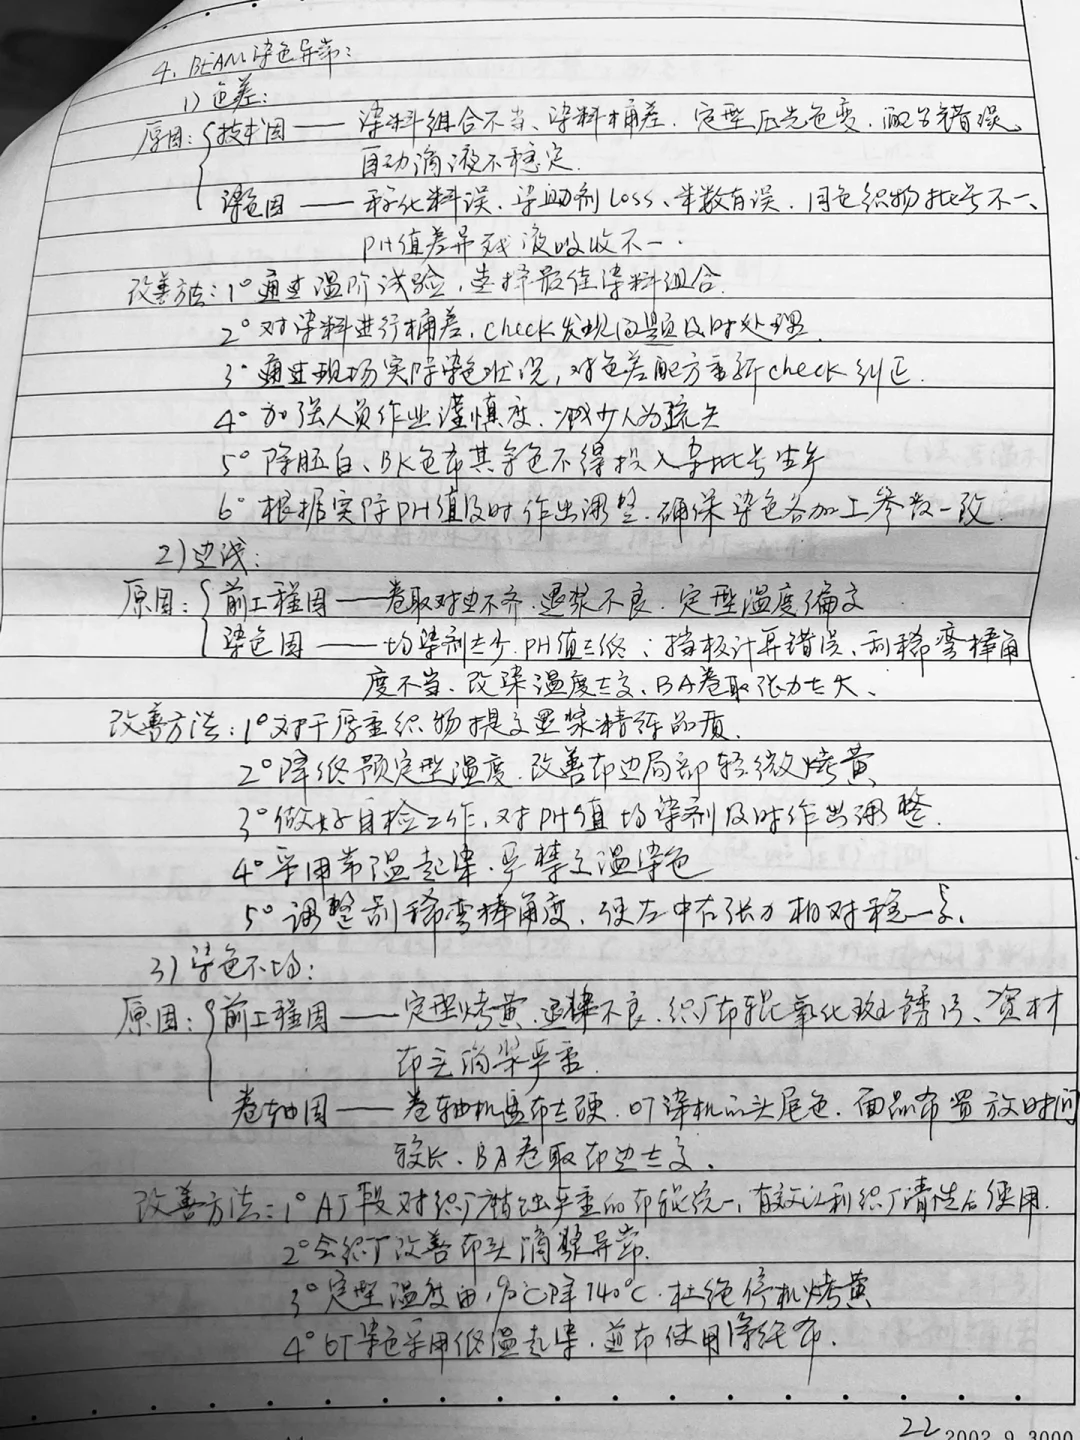 4、BEAM染色异常：
1）色差：
原因：技术因——染料组合不当、染料桶差．定型后光色变．配台错误、
自动滴液不稳定．
染色因——称化料误．染助剂Loss、米数有误．同色织物批号不一、
PH值差异 残液吸收不一．
改善方法：1°通过温阶试验，选择最佳染料组合．
2°对染料进行桶差．check发现问题及时处理．
3°通过现场实际染色状况，对色差配方重新check纠正．
4°加强人员作业谨慎度．减少人为疏失
5°除胚白、BK色布其余色不得投入杂批号生产
6°根据实际PH值及时作出调整．确保染色各加工参数一致．
2）边浅：
原因：前工程因——卷取对边不齐．退浆不良．定型温度偏高
染色因——均染剂太少．PH值太终；挡板计算错误、刮稀弯棒角
度不当．改染温度太高、BA卷取张力太大、
改善方法：1°对于厚重织物提高退浆精练品质．
2°降低预定型温度．改善布边局部轻微烤黄
3°做好自检工作．对PH值均染剂及时作出调整．
4°采用常温起染．严禁高温染色
5°调整刮稀弯棒角度．使左中右张力相对稳一点．
3）染色不均：
原因：前工程因——定型烤黄．退浆不良．织厂布辊氧化斑锈污、资材
布头消浆严重．
卷轴因——卷轴机温布太硬．OT染机布头尾色．面品布置放时间
较长、BA卷取布边太高．
改善方法：1°AJ段对织厂腐蚀严重的布辊统一，有效认利织厂清洁后使用．
2°会织厂改善布头消浆异常．
3°定型温度由190℃降140℃．杜绝停机烤黄
4°OT染色采用低温起染．并布使用涤纶布．
22 2002.9.3000